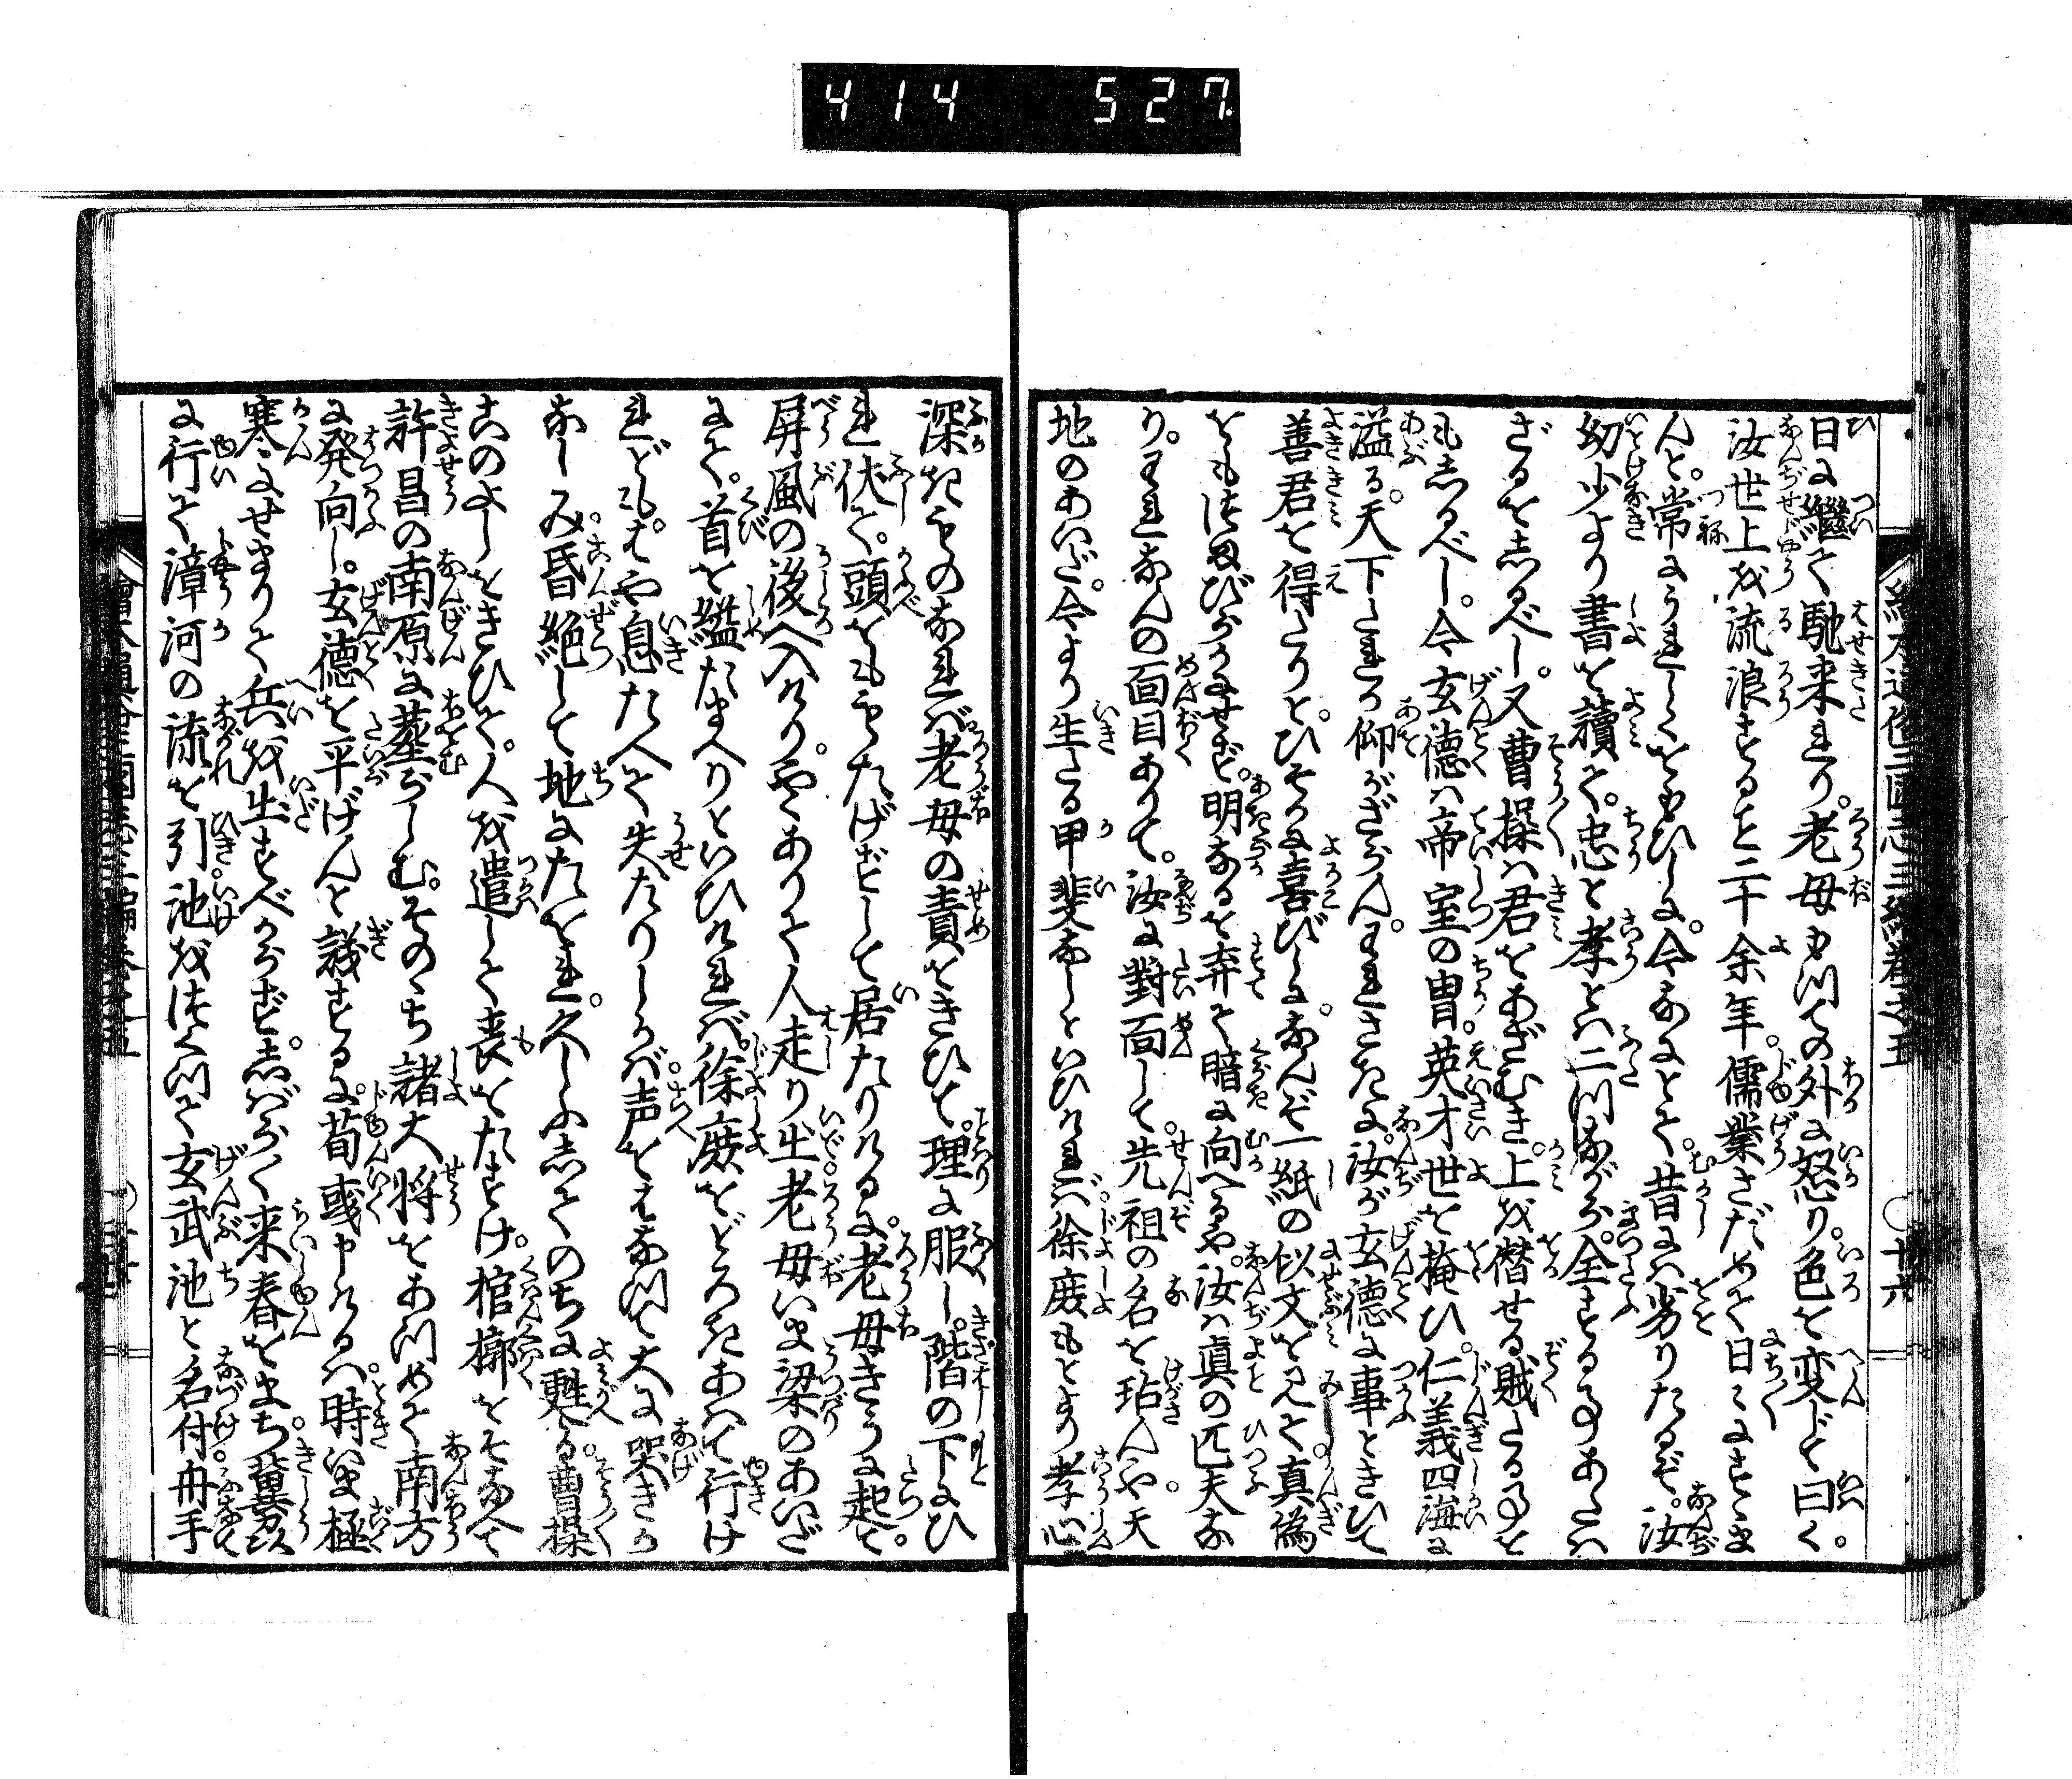 414 527
日に継で馳来れり。老母もつての外に怒り。色を変じて曰く。
汝世上を流浪すること二十余年。儒業さだめて日々にすゝま
んと。常にうれしくをもひしに。今なんとて。昔には劣りたるぞ。汝
幼少より書を讀で。忠と孝とは二つながら。全することあたは
ざるをしるべし。又曹操は君をあざむき。上を僭せる賊たることを
もしるべし。今玄徳は帝室の冑。英才世を掩ひ。仁義四海に
溢る。天下たれか仰がざらん。われさきに。汝が玄徳に事ときひて
善君を得たりと。ひそかに喜びしに。なんぞ一紙の似文を見て真偽
をもつまびらかにせず。明なるを弃て暗に向へるや。汝は真の匹夫な
り。われなんの面目ありて。汝に對面して。先祖の名を玷んや。天
地のあいだ。今より生たる甲斐なしといひければ。徐庶もとより孝心
深きものなれば老母の責をきひて。理に服し。階の下にひ
れ伏て。頭をもえたげずして居たりけるに。老母きうに起て。
屏風の後へ入けり。やゝありて人走り出老母いま梁のあいだ
にて。首を縊たまへりといひければ。徐庶をどろきあはて行け
れども。はや息たへて失たりしかば声をそなへて大に哭きか
なしみ。昏絶して地にたをれ。久しふしてのちに甦る。曹操
このよしをきひて。人を遣して喪をたすけ。棺槨をそなへて
許昌の南原に葬らしむ。そのゝち諸大将をあつめて南方
に発向し。玄徳を平げんと議するに。荀彧申けるは。時いま極
寒にせまりて兵を出すべからず。しばらく来春をまち。冀州
に行て漳河の流を引。池をほつて玄武池と名付。舟手